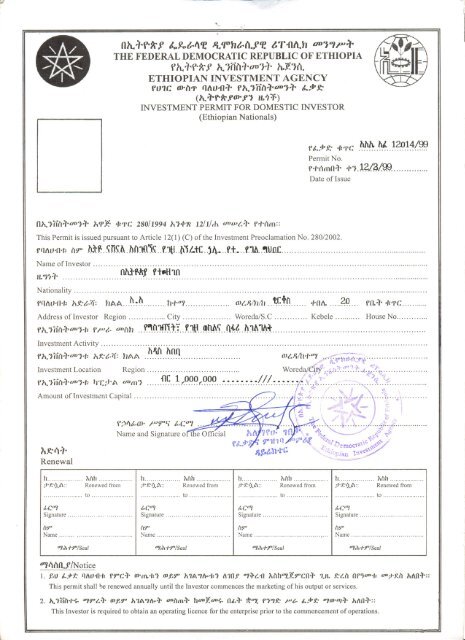 በኢትዮጵያ ፌዴራላዊ ዲሞክራሲያዊ ሪፐብሊክ መንግሥት
THE FEDERAL DEMOCRATIC REPUBLIC OF ETHIOPIA
የኢትዮጵያ ኢንቨስትመንት ኤጀንሲ
ETHIOPIAN INVESTMENT AGENCY
የሀገር ውስጥ ባለሀብት የኢንቨስትመንት ፈቃድ
(ኢትዮጵያውያን ዜጎች)
INVESTMENT PERMIT FOR DOMESTIC INVESTOR
(Ethiopian Nationals)
የፈቃድ ቁጥር 12014/99
Permit No.
የተሰጠበት ቀን 12/3/99
Date of Issue
በኢንቨስትመንት አዋጅ ቁጥር 280/1994 አንቀጽ 12/1/ሐ መሠረት የተሰጠ።
This Permit is issued pursuant to Article 12(1) (C) of the Investment Preoclamation No. 280/2002.
የባለሀብቱ ስም
Name of Investor
ዜግነት
Nationality
የባለሀብቱ አድራሻ: ክልል አ.አ ከተማ ወረዳ/ክ/ከ ቀበሌ 20 የቤት ቁጥር
Address of Investor Region City Woreda/S.C Kebele House No.
የኢንቨስትመንቱ የሥራ መስክ
Investment Activity
የኢንቨስትመንቱ አድራሻ: ክልል አዲስ አበባ ወረዳ/ከተማ
Investment Location Region Woreda/City
የኢንቨስትመንቱ ካፒታል መጠን ብር 1,000,000 ///
Amount of Investment Capital
የኃላፊው ሥምና ፊርማ
Name and Signature of the Official
ዳይሬክተር
Federal Democratic Republic
Ethiopian Investment
እድሳት
Renewal
ከ እስከ ታድሷል። Renewed from to
ከ እስከ ታድሷል። Renewed from to
ከ እስከ ታድሷል። Renewed from to
ከ እስከ ታድሷል። Renewed from to
ፊርማ ፊርማ ፊርማ ፊርማ
Signature Signature Signature Signature
ስም ስም ስም ስም
Name Name Name Name
ማኅተም/Seal ማኅተም/Seal ማኅተም/Seal ማኅተም/Seal
ማሳሰቢያ/Notice
1. ይህ ፈቃድ ባለሀብቱ የምርት ውጤቱን ወይም አገልግሎቱን ለገበያ ማቅረብ እስከሚጀምርበት ጊዜ ድረስ በየዓመቱ መታደስ አለበት።
This permit shall be renewed annually until the Investor commences the marketing of his output or services.
2. ኢንቨስተሩ ማምረት ወይም አገልግሎት መስጠት ከመጀመሩ በፊት ቋሚ የንግድ ሥራ ፈቃድ ማውጣት አለበት።
This Investor is required to obtain an operating licence for the enterprise prior to the commencement of operations.